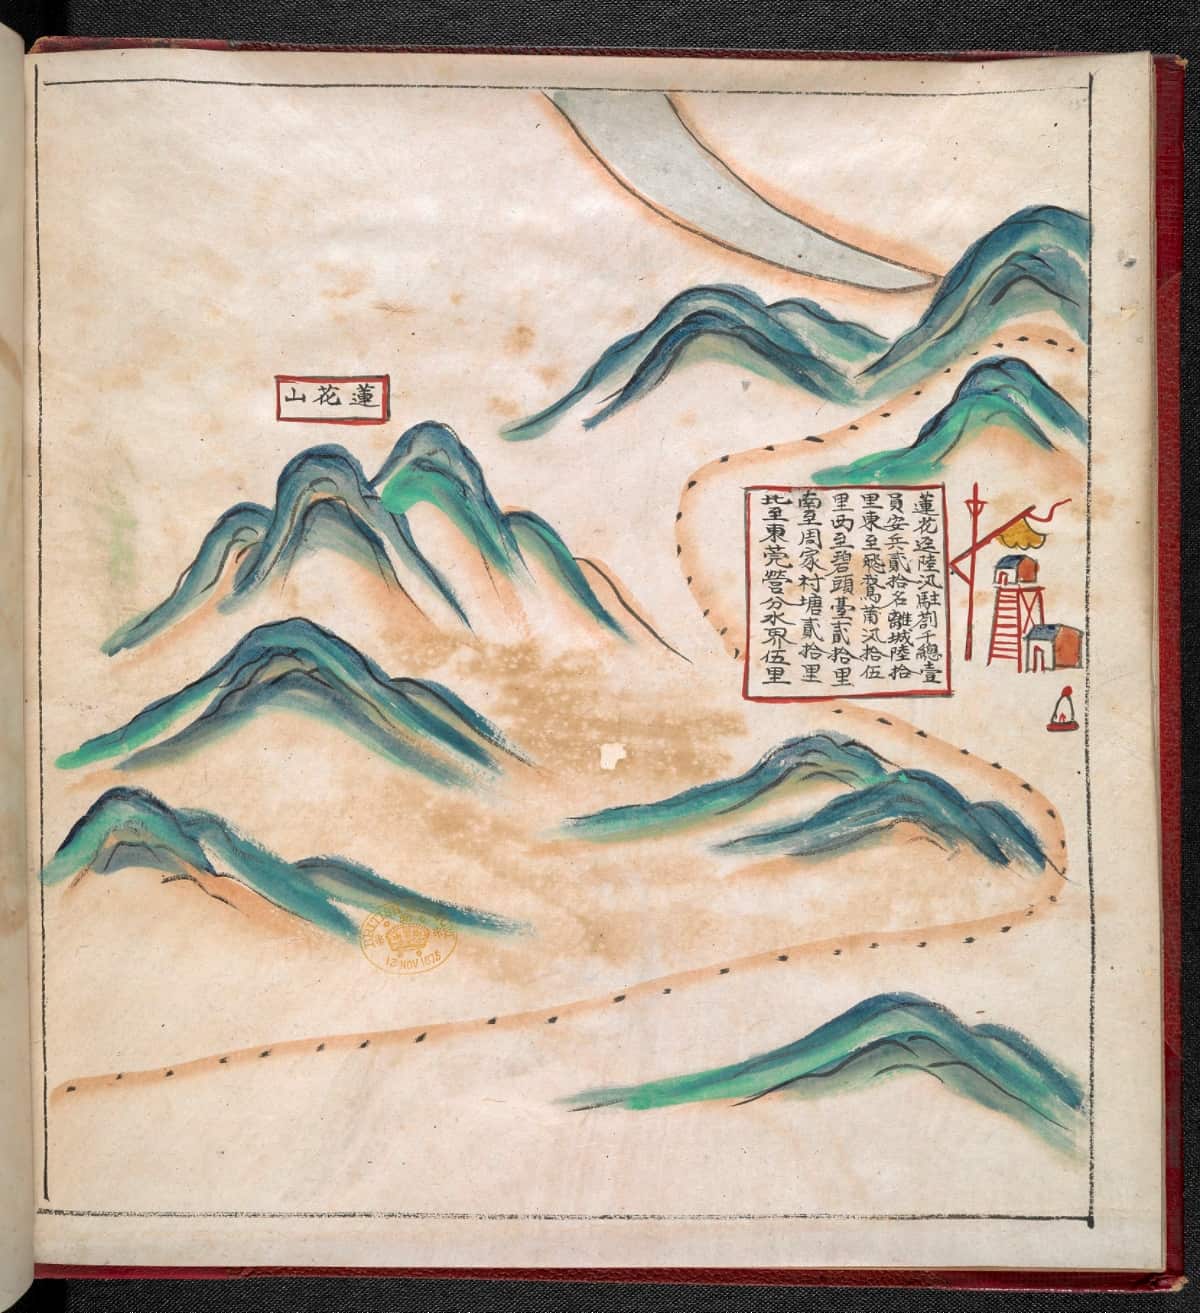 蓮花山
蓮花逕陸汛駐劄千總壹
員安兵貳拾名離城陸拾
里東至飛鵞莆汛拾伍
里西至碧頭臺貳拾里
南至周家村塘貳拾里
北至東莞營分水界伍里
BRITISH
12 NOV 1875